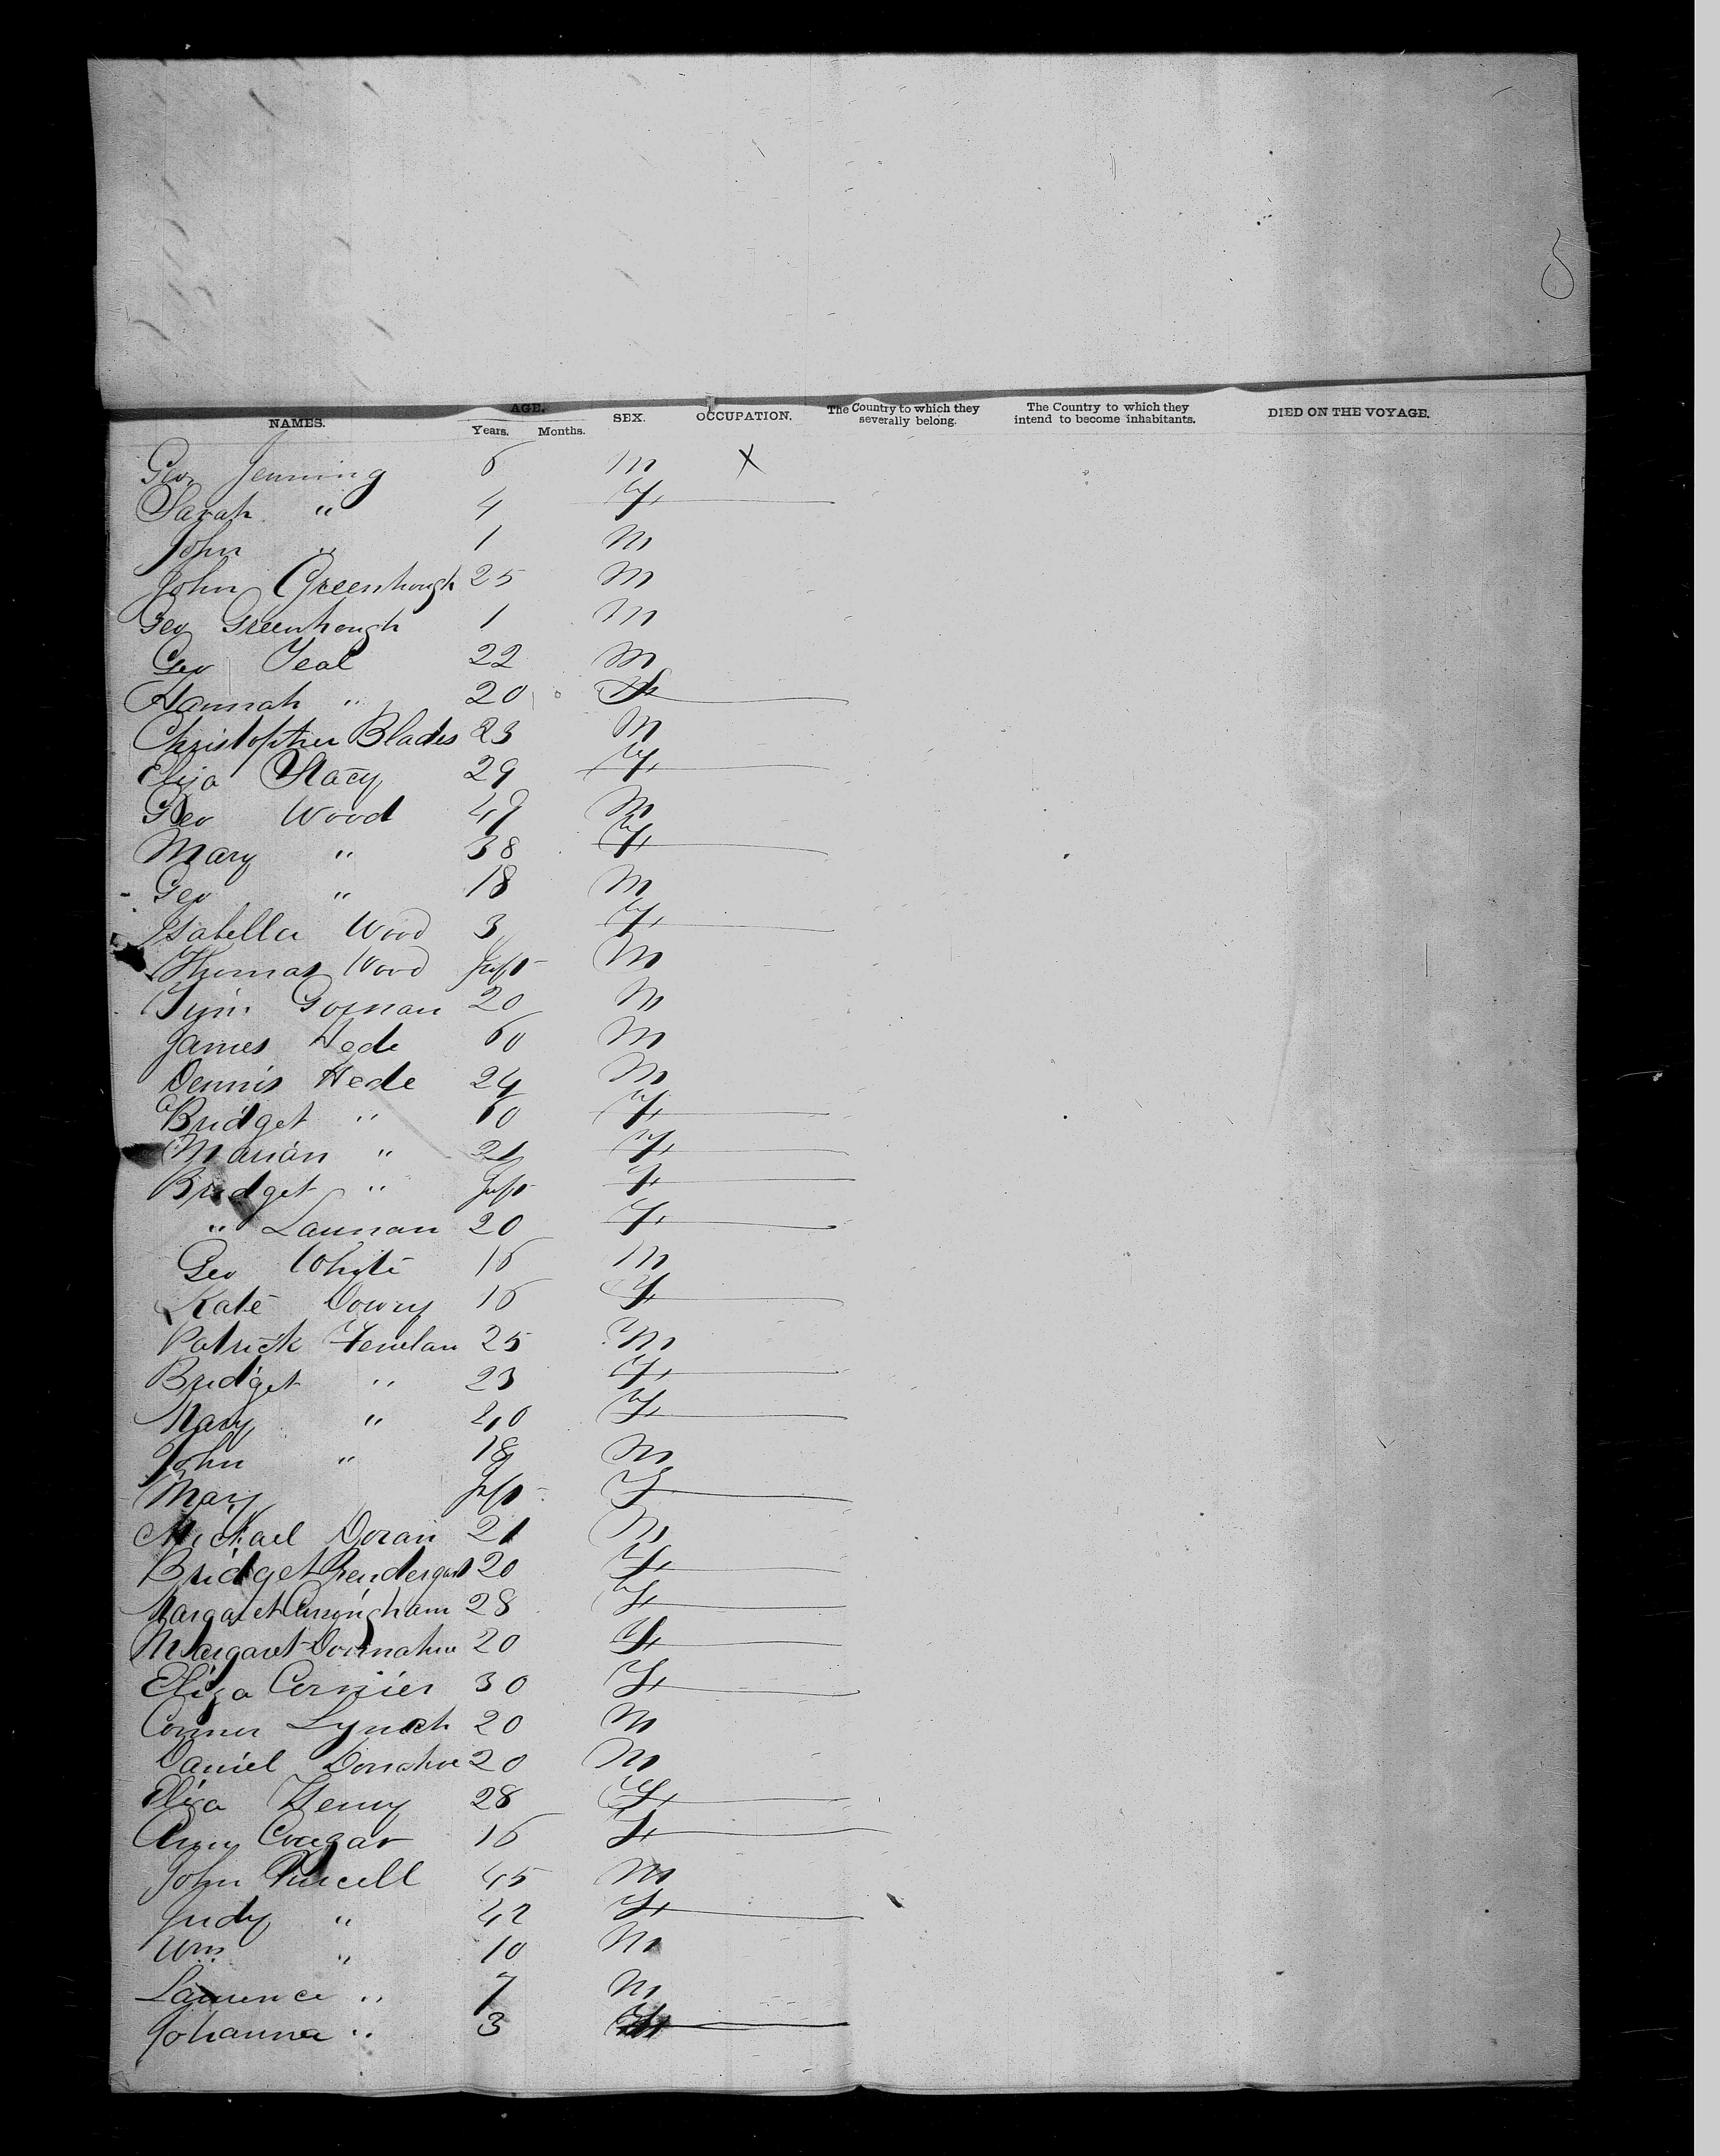 8
NAMES. AGE. Years. Months. SEX. OCCUPATION. The Country to which they severally belong. The Country to which they intend to become inhabitants. DIED ON THE VOYAGE.
Geo Jenning 6 M X
Sarah " 4 F
John " 1 M
John Greenhough 25 M
Geo Greenhough 1 M
Geo Teal 22 M
Hannah " 20 F
Christopher Blades 23 M
Eliza Stacy 29 F
Geo Wood 49 M
Mary " 38 F
Geo " 18 M
Isabella Wood 3 F
Thomas Wood Inft M
Tim Gorman 20 M
James Hede 60 M
Dennis Hede 24 M
Bridget " 60 F
Marian " 21 F
Bridget " Inft F
" Lannan 20 F
Geo White 16 M
Kate Dowry 16 F
Patrick Fenelan 25 M
Bridget " 23 F
Mary " 20 F
John " 18 M
Mary Inft F
Michael Doran 21 M
Bridget Prendergast 20 F
Margaret Cunningham 28 F
Margaret Donnahue 20 F
Eliza 30 F
Conner Lynch 20 M
Daniel Donohue 20 M
Eliza Henry 28 F
Ann 16 F
John Purcell 45 M
Judy " 42 F
Wm " 10 M
Laurence " 7 M
Johanna " 3 F